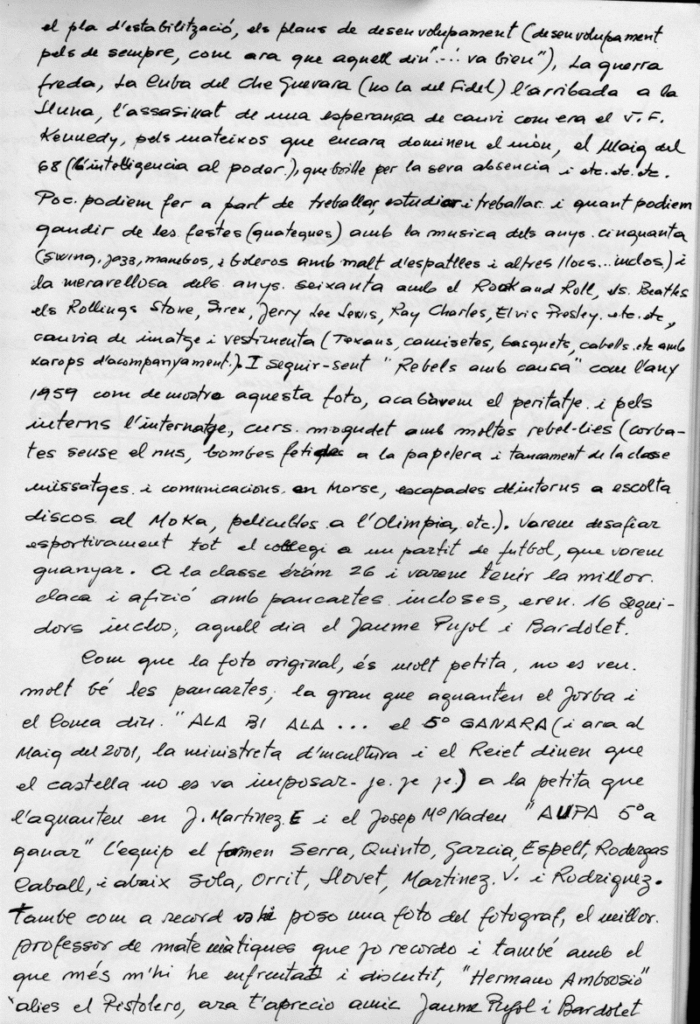 el pla d'estabilització, els plans de desenvolupament (desenvolupament
pels de sempre, com ara que aquell diu "...va bien"), La guerra
freda, La Cuba del Che Guevara (no la del Fidel) l'arribada a la
lluna, l'assasinat de una esperança de canvi com era el J.F.
Kennedy, pels mateixos que encara dominen el món, el Maig del
68 (L'intelligencia al poder.), que brille per la seva absencia i etc.etc.etc.
Poc. podiem fer a part de treballar, estudiar i treballar. i quant podiem
gaudir de les festes (guateques) amb la musica dels anys. cinquanta
(swing, jazz, mambos, i boleros amb malt d'espatlles i altres llocs... inclos.) i
la meravellosa dels anys. seixanta amb el Rock and Roll, els. Beatles
els Rollings Stone, Sirex, Jerry Lee Lewis, Ray Charles, Elvis Presley. etc.etc,
canvia de imatge i vestimenta (Texans, camisetes, basquets, cabells. etc amb
xarops d'acompanyament.). I seguir-sent "Rebels amb causa" com l'any
1959 com demostra aquesta foto, acabavem el peritatje. i pels
interns l'internatge, curs. mogudet amb moltes rebel-lies (corba-
tes sense el nus, bombes fetides a la papelera i tancament de la classe
missatges. i comunicacions. en Morse, escapades d'interns a escolta
discos al Moka, pelicules a l'Olimpia, etc.). Varem desafiar
esportivament tot el collegi a un partit de futbol, que varem
guanyar. A la classe érám 26 i varem tenir la millor.
claca i afició amb pancartes incloses, eren. 16 segui-
dors inclos, aquell dia el Jaume Pujol i Bardolet.
Com que la foto original, és molt petita, no es veu.
molt bé les pancartes, la gran que aguanten el Jorba i
el Coma diu. "ALA BI ALA ... el 5º GANARA (i ara al
Maig del 2001, la ministreta d'incultura i el Reiet diuen que
el castella no es va imposar-je.je je.) a la petita que
l'aguanten en J. Martinez. E i el Josep Mª Nadeu "AUPA 5º a
ganar" L'equip el formen Serra, Quinto, Garcia, Espelt, Rodergas
Caball, i abaix Sola, Orrit, Llovet, Martinez. V. i Rodriguez.
també com a record hi poso una foto del fotograf, el millor.
professor de matemàtiques que jo recordo i també amb el
que més m'hi he enfrentat i discutit, "Hermano Ambrosio"
àlies el Pistolero, ara t'aprecio amic Jaume Pujol i Bardolet